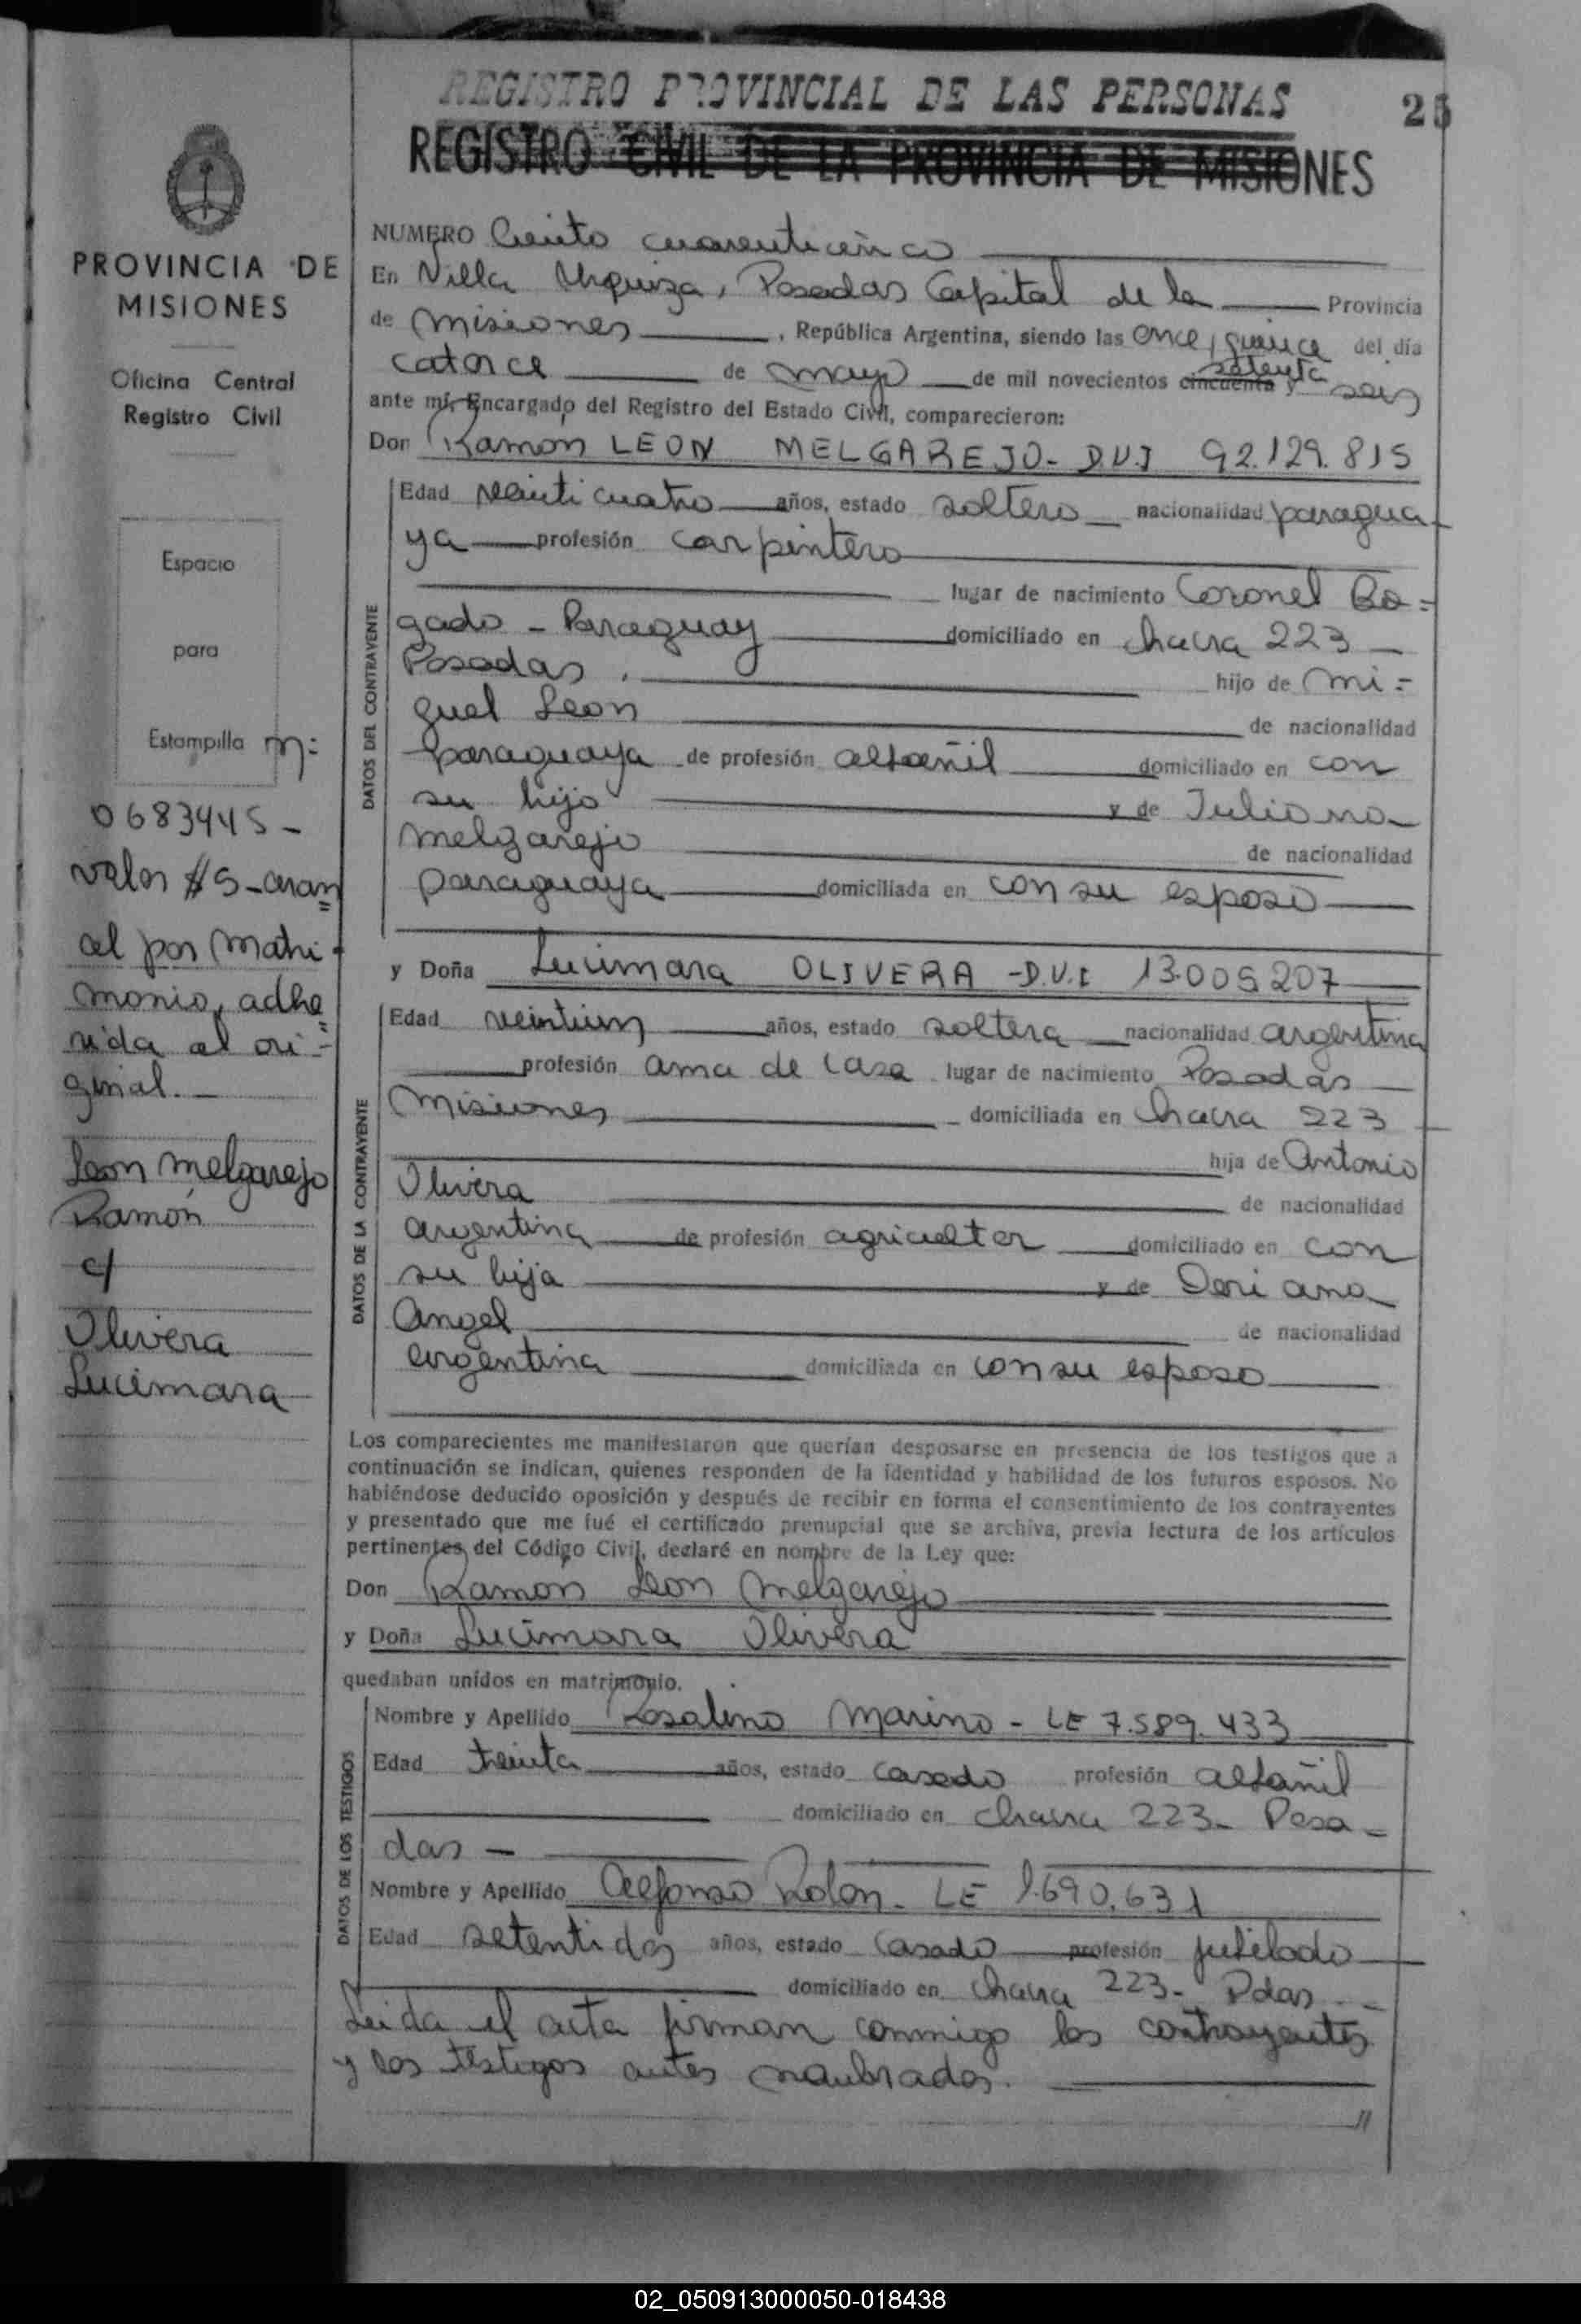 REGISTRO PROVINCIAL DE LAS PERSONAS
25
REGISTRO CIVIL DE LA PROVINCIA DE MISIONES
PROVINCIA DE
MISIONES
Oficina Central
Registro Civil
Espacio
para
Estampilla m=
0683445-
valor $5-aran
=
cel por Matri-
monio, adhe
=
rida al ori=
ginal.-
Leon melgarejo
Ramón
c/
Olivera
Lucimara
NUMERO Ciento cuarenticinco
En Villa Urquiza, Posadas Capital de la Provincia
de Misiones, República Argentina, siendo las once, quince del día
catorce de mayo de mil novecientos cincuenta y setenta seis
ante mí, Encargado del Registro del Estado Civil, comparecieron:
Don Ramón LEON MELGAREJO- D.U.I 92.129.815
DATOS DEL CONTRAYENTE
Edad veinticuatro años, estado soltero nacionalidad paragua-
ya profesión carpintero
lugar de nacimiento Coronel Bo=
gado - Paraguay domiciliado en chacra 223-
Posadas, hijo de mi=
guel Leon de nacionalidad
paraguaya de profesión albañil domiciliado en con
su hijo y de Juliana
melgarejo de nacionalidad
paraguaya domiciliada en con su esposo
y Doña Lucimara OLIVERA -D.U.I 13.005207
DATOS DE LA CONTRAYENTE
Edad veintiun años, estado soltera nacionalidad argentina
profesión ama de casa lugar de nacimiento Posadas
Misiones domiciliada en chacra 223
hija de Antonio
Olivera de nacionalidad
argentina de profesión agricultor domiciliado en con
su hija y de Doriana
Angel de nacionalidad
argentina domiciliada en con su esposo
Los comparecientes me manifestaron que querían desposarse en presencia de los testigos que a
continuación se indican, quienes responden de la identidad y habilidad de los futuros esposos. No
habiéndose deducido oposición y después de recibir en forma el consentimiento de los contrayentes
y presentado que me fué el certificado prenupcial que se archiva, previa lectura de los artículos
pertinentes del Código Civil, declaré en nombre de la Ley que:
Don Ramón Leon Melgarejo
y Doña Lucimara Olivera
quedaban unidos en matrimonio.
DATOS DE LOS TESTIGOS
Nombre y Apellido Rosalino Marino - LE 7.589.433
Edad treinta años, estado casado profesión albañil
domiciliado en chacra 223- Posa-
das -
Nombre y Apellido Alfonso Rolon- LE 1.690.631
Edad setentidos años, estado casado profesión jubilado
domiciliado en chacra 223- Pdas.-
Leida el acta firman conmigo los contrayentes
y los testigos antes nombrados.
//
02_050913000050-018438